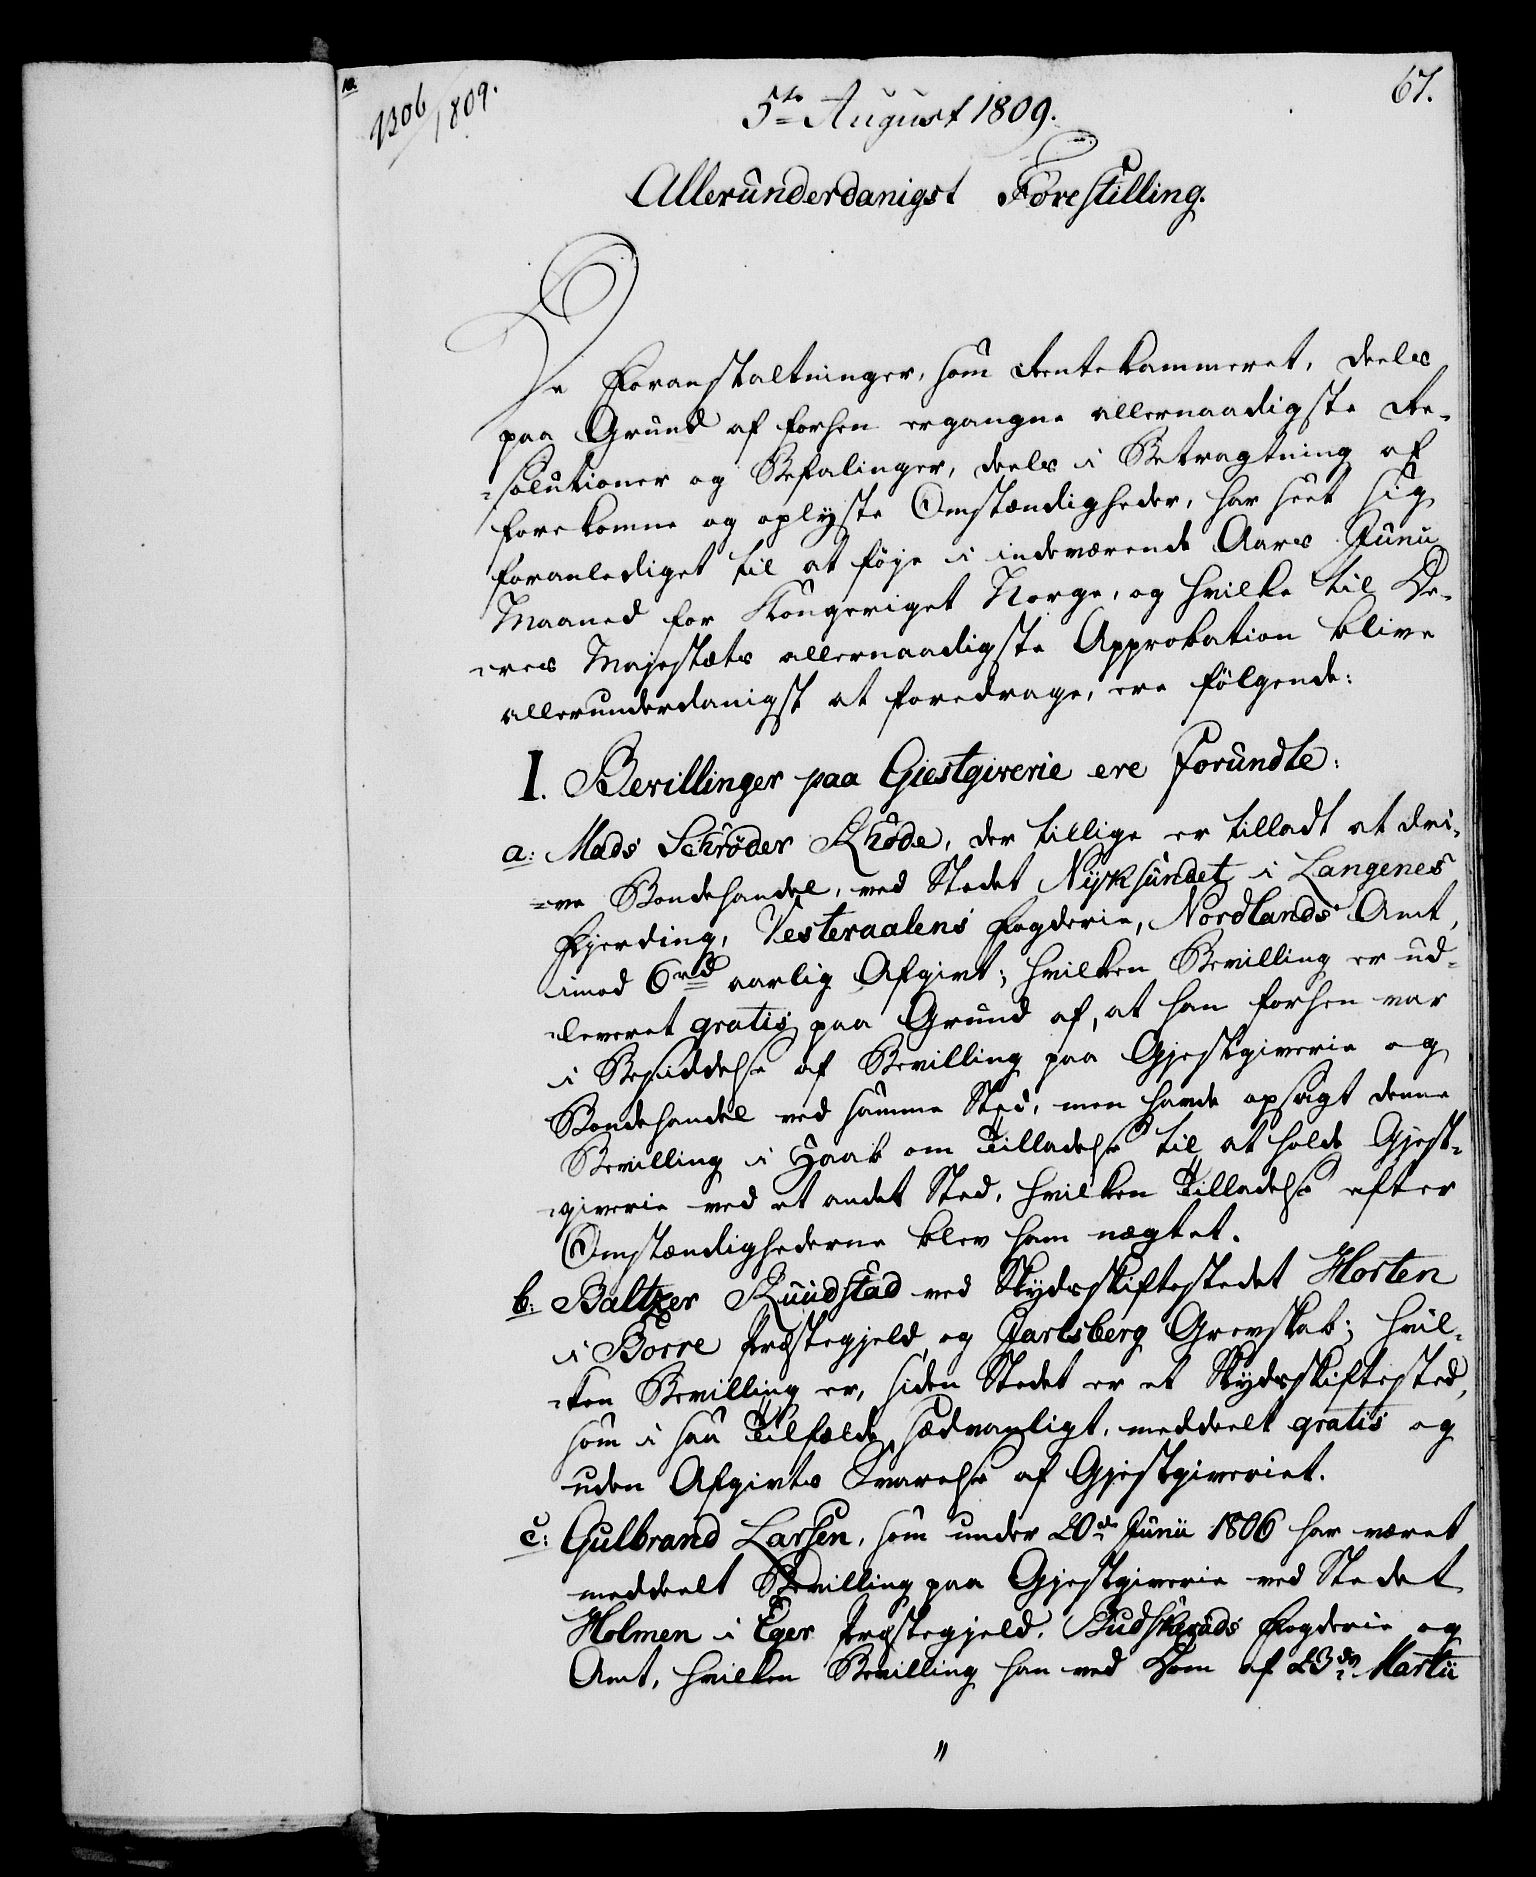 10.
1306/1809.
5te August 1809.
67.
Allerunderdanigst Forestilling.
De Foranstaltninger, som Rentekammeret, deels
paa Grund af forhen ergangne allernaadigste Re-
-solutioner og Befalinger, deels i Betragtning af
forekomne og oplyste Omstændigheder, har seet sig
foranlediget til at føje i indeværende Aars Junii
Maaned for Kongeriget Norge, og hvilke til De-
-res Majestæts allernaadigste Approbation blive
allerunderdanigst at foredrage, ere følgende:
I. Bevillinger paa Giestgiverie ere Forundte:
a: Mads Schrøder Rhode, der tillige er tilladt at dri-
-ve Bondehandel, ved Stedet Nyksundet i Langenes
Fjerding, Vesteraalens Fogderie, Nordlands Amt,
imod 6rd aarlig Afgivt; hvilken Bevilling er ud-
-leveret gratis paa Grund af, at han forhen var
i Besiddelse af Bevilling paa Gjestgiverie og
Bondehandel ved samme Sted, men havde opsagt denne
Bevilling i Haab om Tilladelse til at holde Gjest-
-giverie ved et andet Sted, hvilken Tilladelse efter
Omstændighederne blev ham nægtet.
b: Baltzer Ruudstad ved Skydsskiftestedet Horten
i Borre Præstegjeld og Jarlsberg Grevskab; hvil-
-ken Bevilling er, siden Stedet er et Skydsskiftested,
som i saa Tilfælde sædvanligt, meddeelt gratis og
uden Afgivts Svarelse af Gjestgiveriet.
c: Gulbrand Larsen, som under 20de Junii 1806 har været
meddeelt Bevilling paa Gjestgiverie ved Stedet
Holmen i Eger Præstegjeld, Budskeruds Fogderie og
Amt, hvilken Bevilling han ved Dom af 23de Martii
"